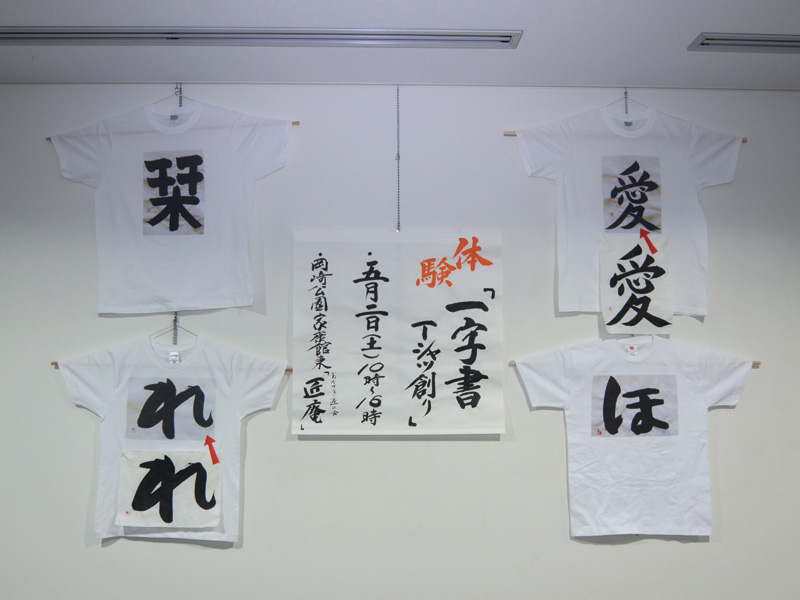 体験
「一字書
Tシャツ創り」
・五月二日(土)10時~16時
・岡崎公園家康館東「匠庵」
栞
愛
愛
れ
れ
ほ